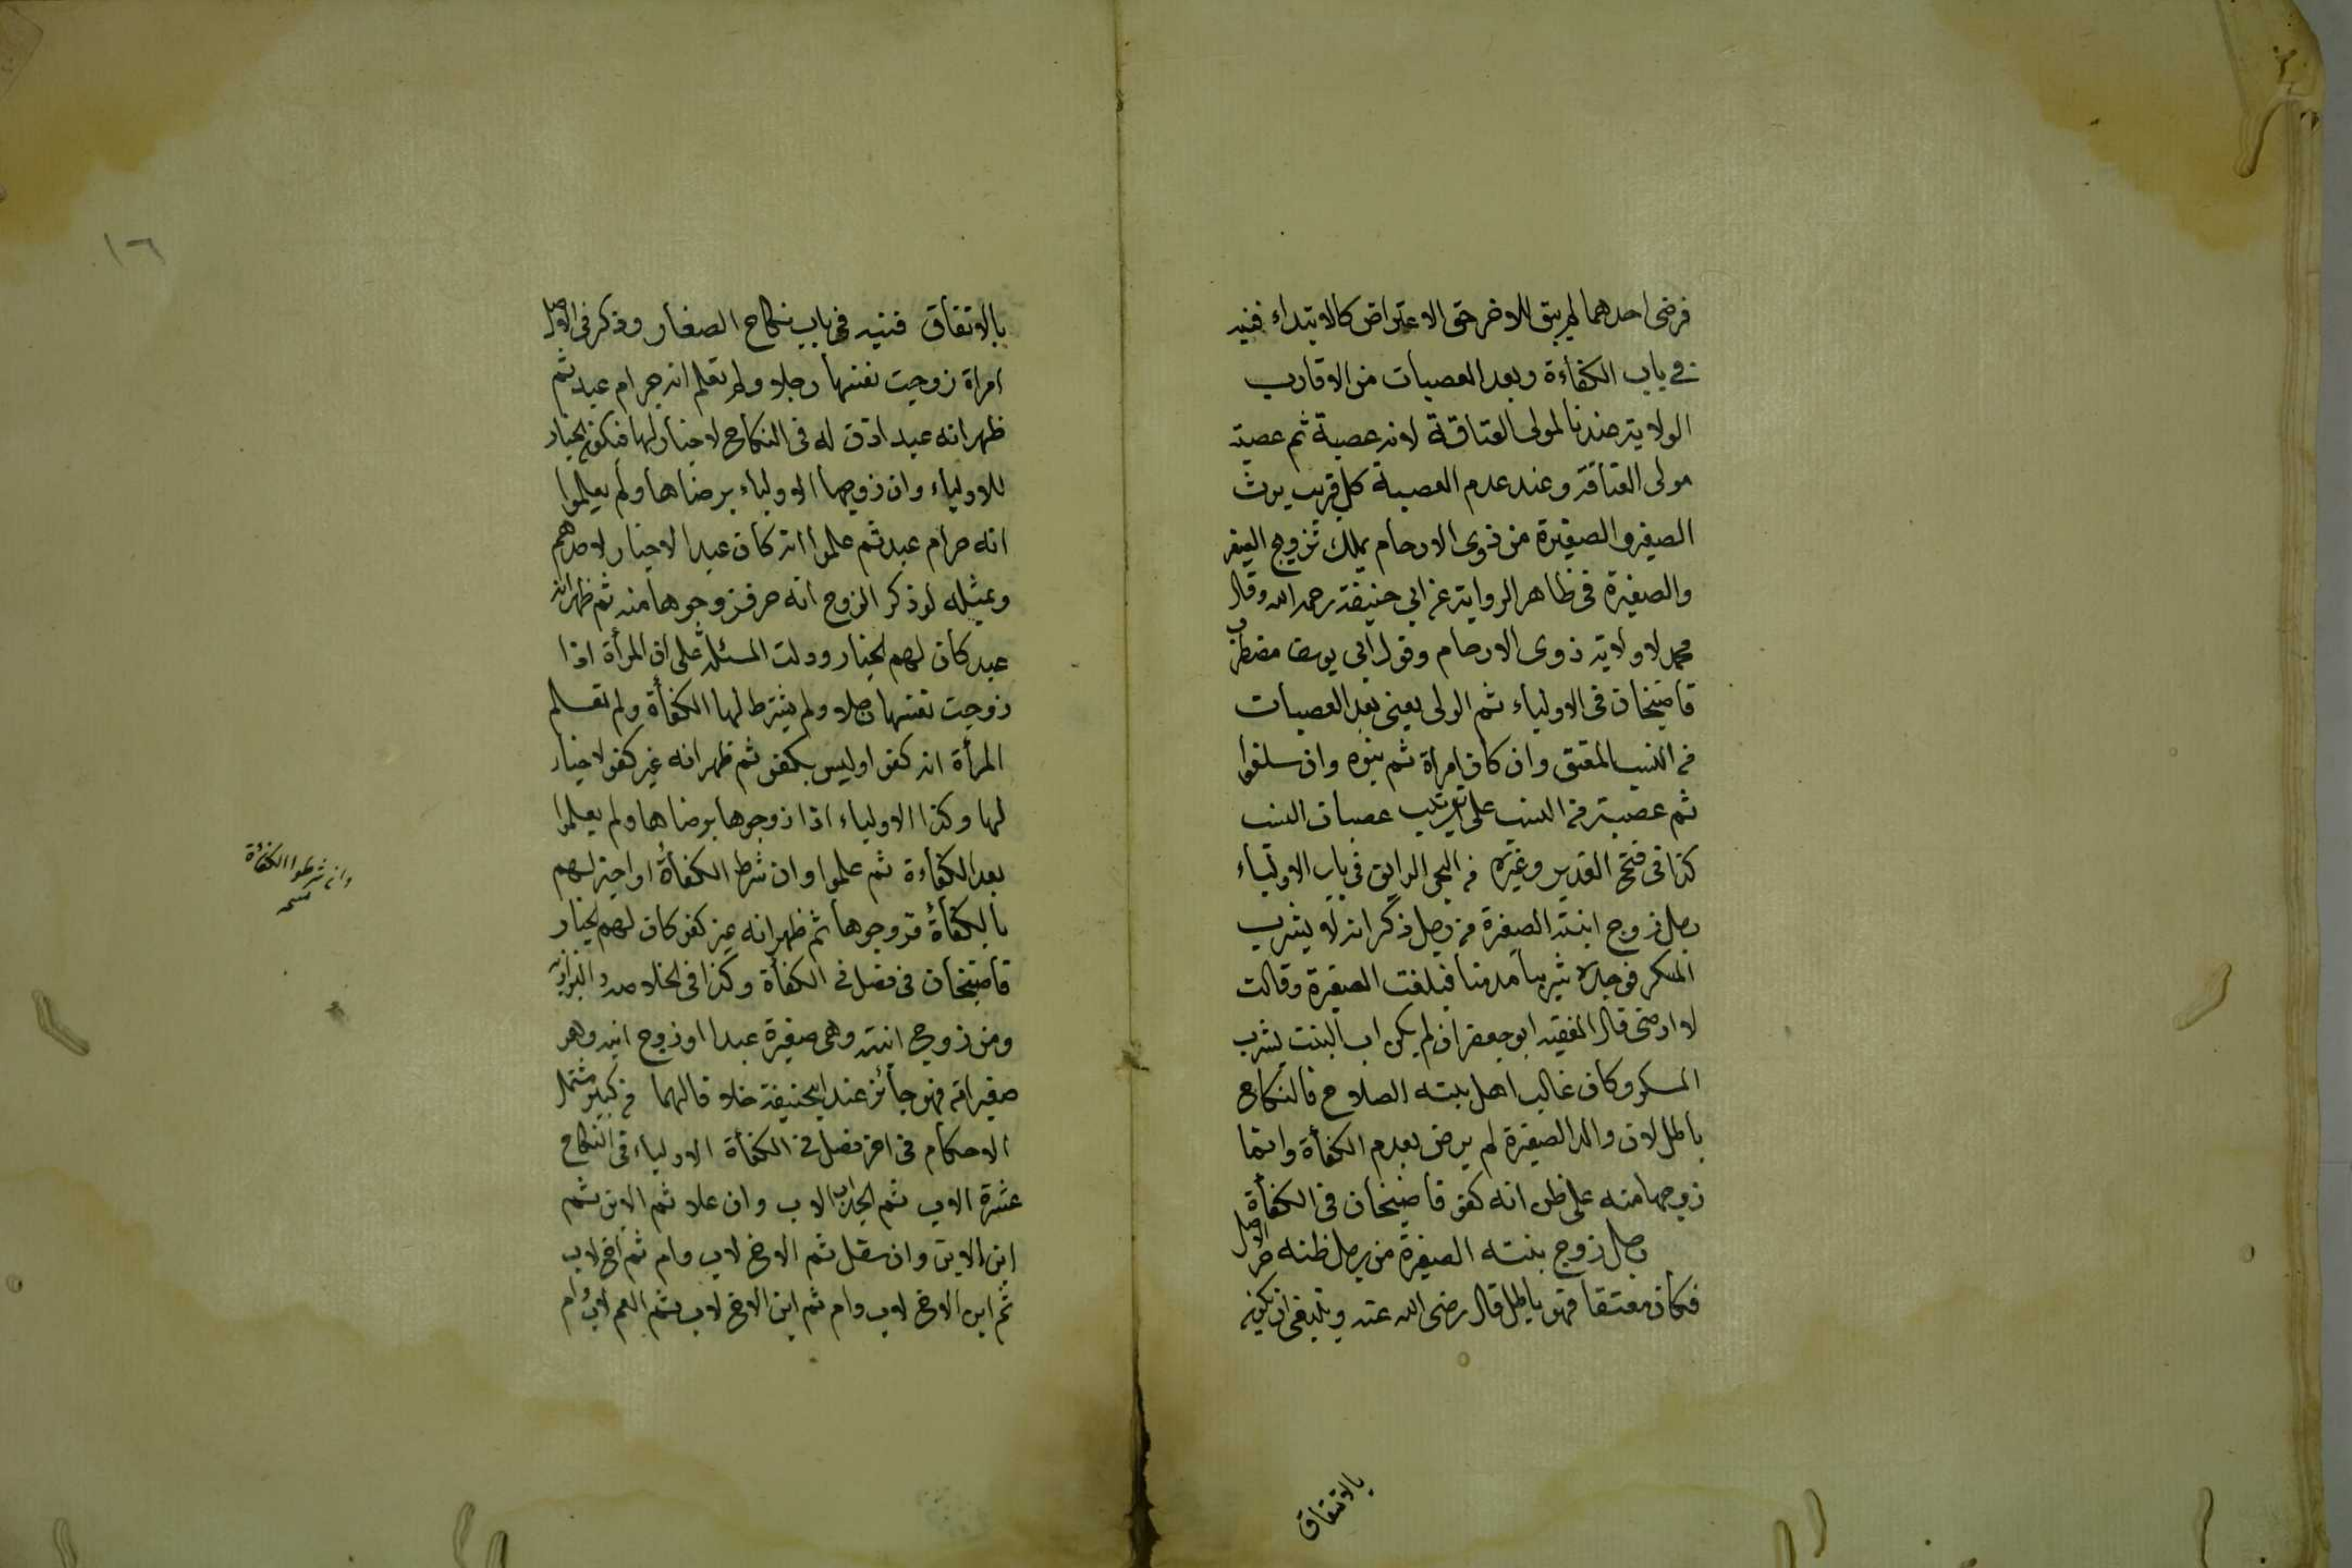 فرضى احدهما لم يبق للاخر حق الاعتراض كالابتداء قنيه
فى باب الكفاءة وبعد العصبات من الاقارب
الولاية عندنا لمولى العتاقة لانه عصبة ثم عصبة
مولى العتاقة وعند عدم العصبة كل قريب يرث
الصغير والصغيرة من ذوى الارحام يملك تزويج الصغير
والصغيرة فى ظاهر الرواية عن ابى حنيفة رحمه الله وقال
محمد لا ولاية ذوى الارحام وقول ابى يوسف مضطرب
قاضيخان فى الاولياء ثم الولى يعنى بعد العصبات
من النسب المعتق وان كان امراة ثم بنوه وان سفلوا
ثم عصبته من النسب على ترتيب عصبات النسب
كذا فى فتح القدير وغيره من البحر الرايق فى باب الاولياء
رجل زوج ابنته الصغيرة من رجل ذكر انه لا يشرب
المسكر فوجده شريبا مدمنا فبلغت الصغيرة وقالت
لا ارضى قال الفقيه ابو جعفر ان لم يكن اب البنت يشرب
المسكر وكان غالب اهل بيته الصلاح فالنكاح
باطل لان والد الصغيرة لم يرض بعدم الكفأة وانما
زوجها منه على ظن انه كفؤ قاضيخان فى الكفأة
رجل زوج بنته الصغيرة من رجل ظنه حر الاصل
فكان معتقا فهو باطل قال رضى الله عنه وينبغى ان يكون
بالاتفاق
بالاتفاق قنيه فى باب نكاح الصغار وذكر فى الاصل
امراة زوجت نفسها رجلا ولم تعلم انه حر ام عبد ثم
ظهر انه عبد اذن له فى النكاح لا خيار لها فيكون الخيار
للاولياء وان زوجها الاولياء برضاها ولم يعلموا
انه حر ام عبد ثم علموا انه كان عبدا لا خيار لاحدهم
وبمثله لو ذكر الزوج انه حر فزوجوها منه ثم ظهر انه
عبد كان لهم الخيار ودلت المسئلة على ان المرأة اذا
زوجت نفسها رجلا ولم يشترط لها الكفأة ولم تعلم
المرأة انه كفؤ او ليس بكفؤ ثم ظهر انه غير كفؤ لا خيار
لها وكذا الاولياء اذا زوجوها برضاها ولم يعلموا
بعد الكفاءة ثم علموا وان شرط الكفأة او اخبر لهم
بالكفأة فزوجوها ثم ظهر انه غير كفؤ كان لهم الخيار
قاضيخان فى فصل فى الكفأة وكذا فى الخلاصه والبزازيه
ومن زوج ابنته وهى صغيرة عبدا او زوج ابنه وهو
صغير امة فهو جائز عند ابى حنيفة خلافا لهما من كبير مشتمل
الاحكام فى اخر فصل فى الكفأة الاولياء فى النكاح
عشرة الاب ثم الجد اب الاب وان علا ثم الابن ثم
ابن الابن وان سفل ثم الاخ لاب وام ثم اخ لاب
ثم ابن الاخ لاب وام ثم ابن الاخ لاب ثم العم لاب وام
وان شرطوا الكفأة
نسخه
١٦